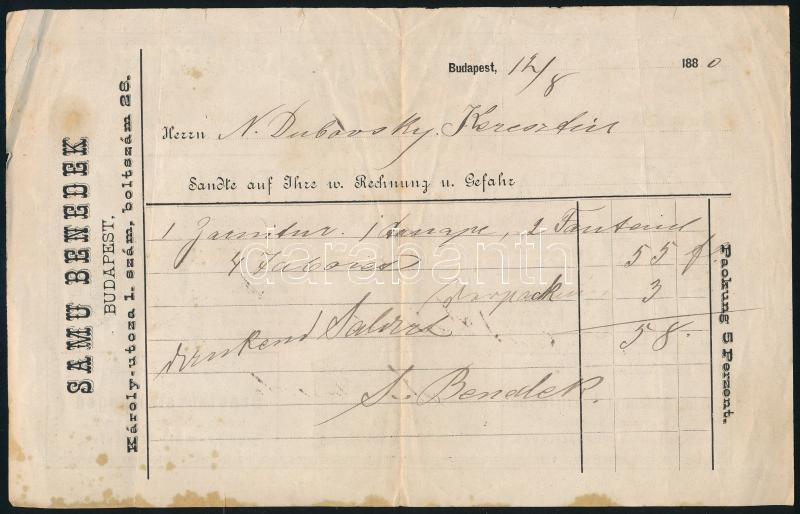 SAMU BENEDEK
BUDAPEST,
Károly-utcza 1. szám, boltszám 28.
Budapest, 12/8 1880
Herrn N. Dubovsky, Keresztúr
Sandte auf Ihre w. Rechnung u. Gefahr
1 Garnitur. 1 Canape, 2 Fauteuil
4 55 f
3
dankend Saldirt 58.
S. Bendek.
Packung 5 Perzent.
darabanth